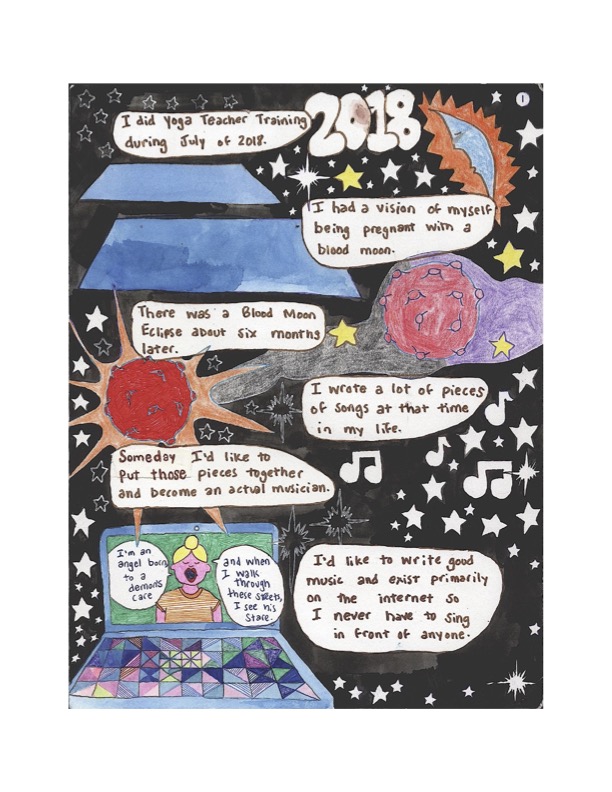 2018
1
I did Yoga Teacher Training
during July of 2018.
I had a vision of myself
being pregnant with a
blood moon.
There was a Blood Moon
Eclipse about six months
later.
I wrote a lot of pieces
of songs at that time
in my life.
Someday I'd like to
put those pieces together
and become an actual musician.
I'm an
angel born
to a
demon's
care
and when
I walk
through
these streets,
I see his
stare.
I'd like to write good
music and exist primarily
on the internet so
I never have to sing
in front of anyone.